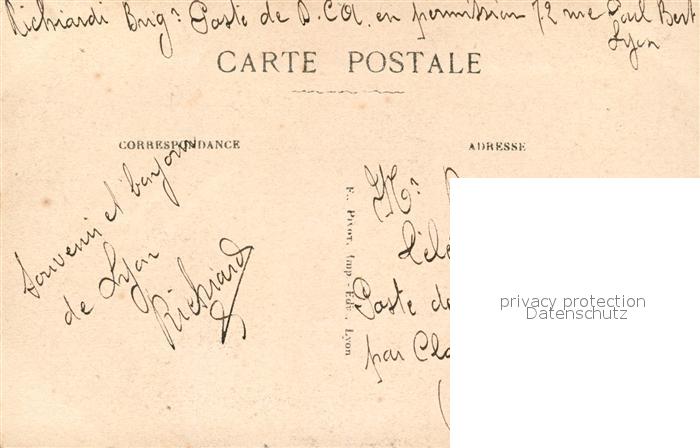 Richiardi Brigr Poste de D.C.A. en permission 72 rue Paul Bert
Lyon
CARTE POSTALE
CORRESPONDANCE
ADRESSE
Souvenir et bonjour
de Lyon
Richiardi
E. Pivot, Imp.-Edit., Lyon
Mr
Poste de
par Cla
privacy protection
Datenschutz